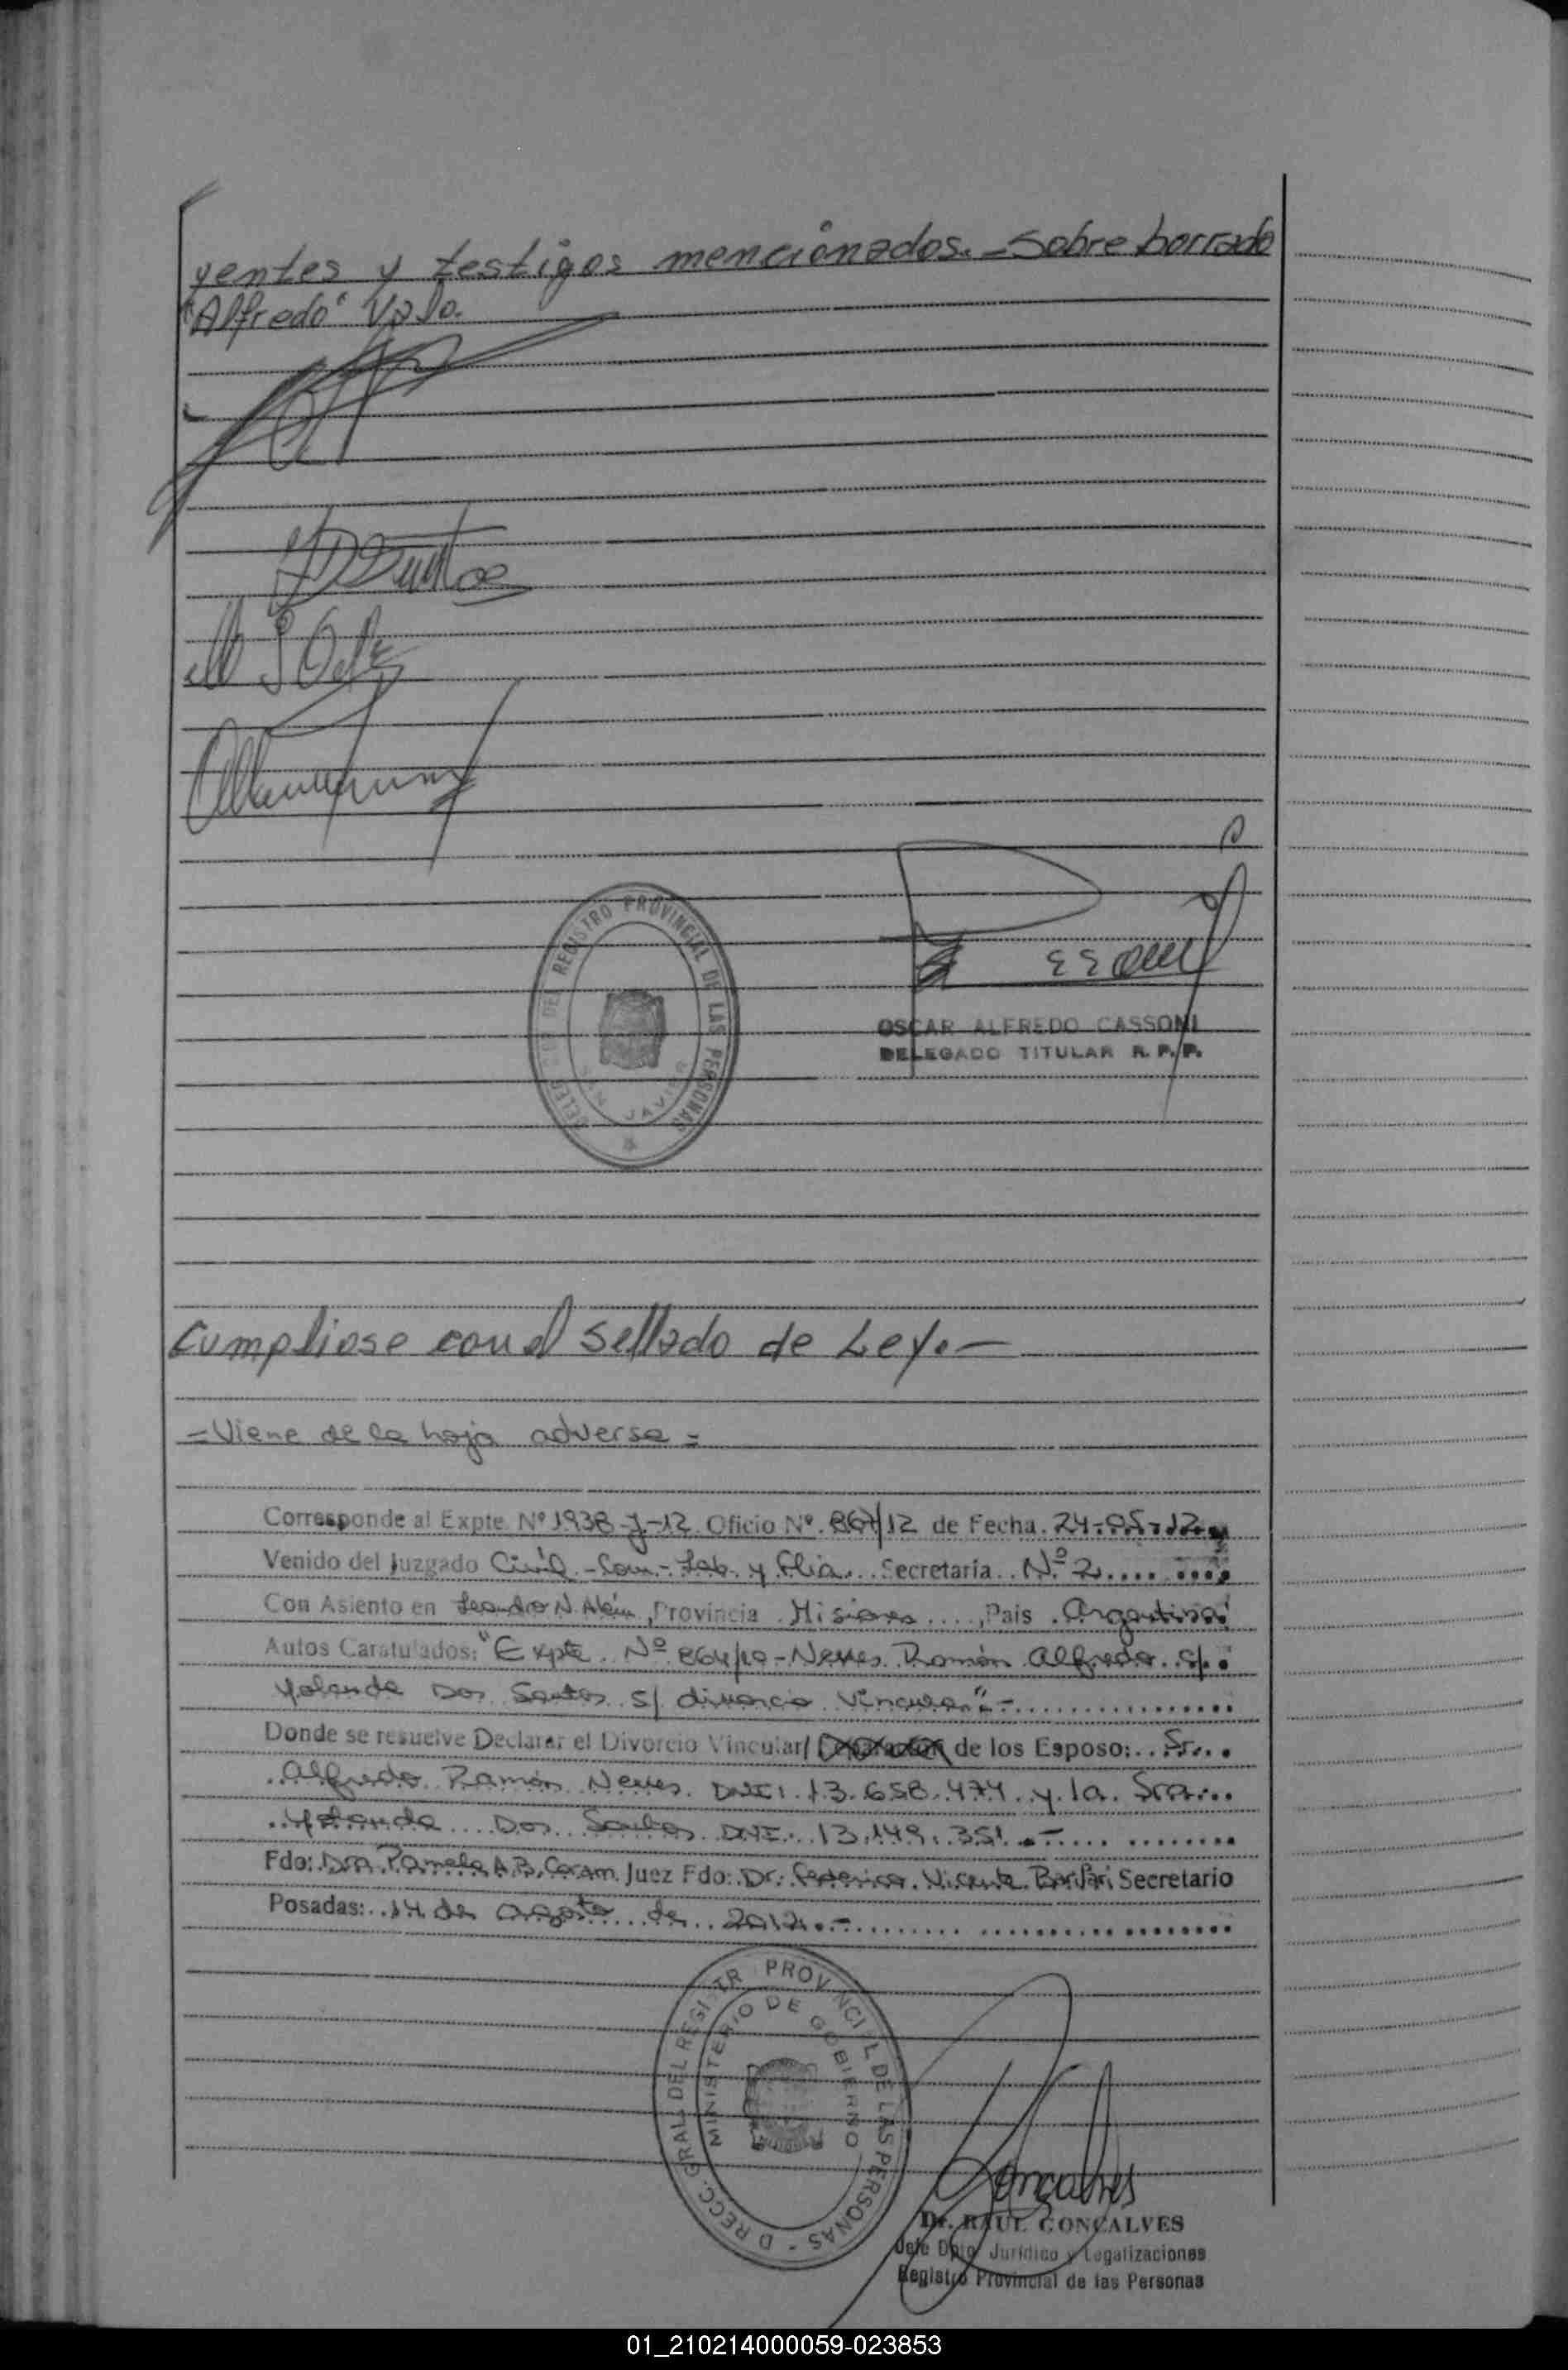 yentes y testigos mencionados.-Sobre borrado
"Alfredo" Vale.
OSCAR ALFREDO CASSONI
DELEGADO TITULAR R. P. P.
DEL REGISTRO PROVINCIAL DE LAS PERSONAS
SAN JAVIER
Cumpliose con el Sellado de Ley.-
=Viene de la hoja adversa=
Corresponde al Expte. Nº 1938-J-12 Oficio Nº. 867/12 de Fecha. 24-05-12
Venido del Juzgado Civil.-Com.-Lab. y Flia... Secretaría.. Nº 2....
Con Asiento en Leandro N. Alem, Provincia. Misiones...., Pais. Argentina.
Autos Caratulados: "Expte. Nº 864/10-Neves Ramón Alfredo c/.
Yolanda Dos Santos s/ divorcio vincular".-
Donde se resuelve Declarar el Divorcio Vincular/ de los Esposo:..Sr...
.Alfredo Ramón Neves. DNI: 13.658.474. y. la. Sra...
..Yolanda... Dos... Santos. DNI. 13.149.351.-
Fdo: Dra. Pamela A.B. Caram. Juez Fdo: Dr. Federico Vicente Secretario
Posadas:..14 de agosto de 2012.-
DIRECC. GRAL. DEL REGISTR PROVINCIAL DE LAS PERSONAS -
MINISTERIO DE GOBIERNO
Goncalves
Dr. RAUL GONCALVES
Jefe Dpto. Jurídico y Legalizaciones
Registro Provincial de las Personas
01_210214000059-023853